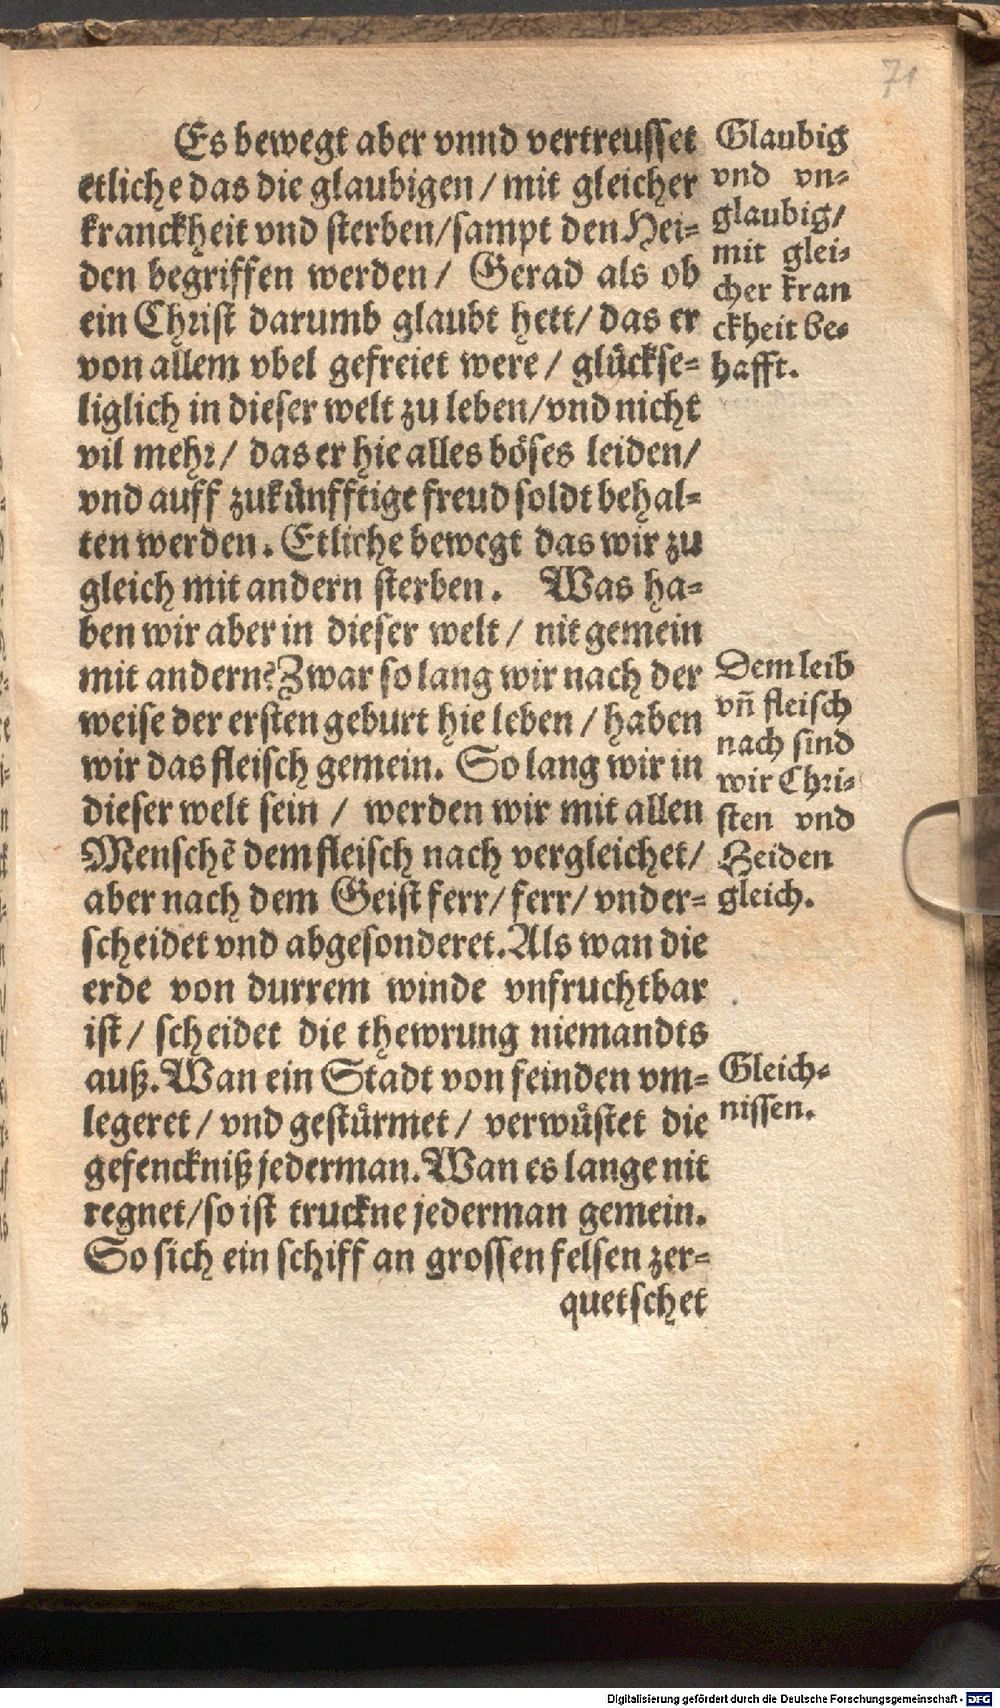 71
Es bewegt aber vnnd vertreusset
etliche das die glaubigen / mit gleicher
kranckheit vnd sterben/sampt den Hei-
den begriffen werden / Gerad als ob
ein Christ darumb glaubt hett/ das er
von allem vbel gefreiet were / glückse-
liglich in dieser welt zu leben/vnd nicht
vil mehr/ das er hie alles böses leiden/
vnd auff zukünfftige freud soldt behal-
ten werden. Etliche bewegt das wir zu
gleich mit andern sterben. Was ha-
ben wir aber in dieser welt / nit gemein
mit andern? Zwar so lang wir nach der
weise der ersten geburt hie leben / haben
wir das fleisch gemein. So lang wir in
dieser welt sein / werden wir mit allen
Menschē dem fleisch nach vergleichet/
aber nach dem Geist ferr/ ferr/ vnder-
scheidet vnd abgesonderet. Als wan die
erde von durrem winde vnfruchtbar
ist/ scheidet die thewrung niemandts
auß. Wan ein Stadt von feinden vm-
legeret / vnd gestürmet / verwüstet die
gefenckniß jederman. Wan es lange nit
regnet/so ist truckne jederman gemein.
So sich ein schiff an grossen felsen zer-
quetschet
Glaubig
vnd vn-
glaubig/
mit glei-
cher kran
ckheit be-
hafft.
Dem leib
vñ fleisch
nach sind
wir Chri-
sten vnd
Heiden
gleich.
Gleich-
nissen.
Digitalisierung gefördert durch die Deutsche Forschungsgemeinschaft - DFG